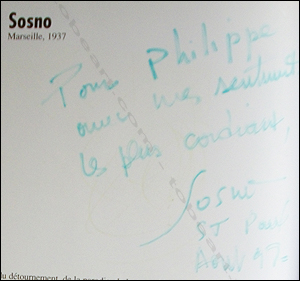 Sosno
Marseille, 1937
Pour Philippe
avec mes sentiments
les plus cordiaux,
Sosno
ST Paul
Août 97
du détournement, de la parodie